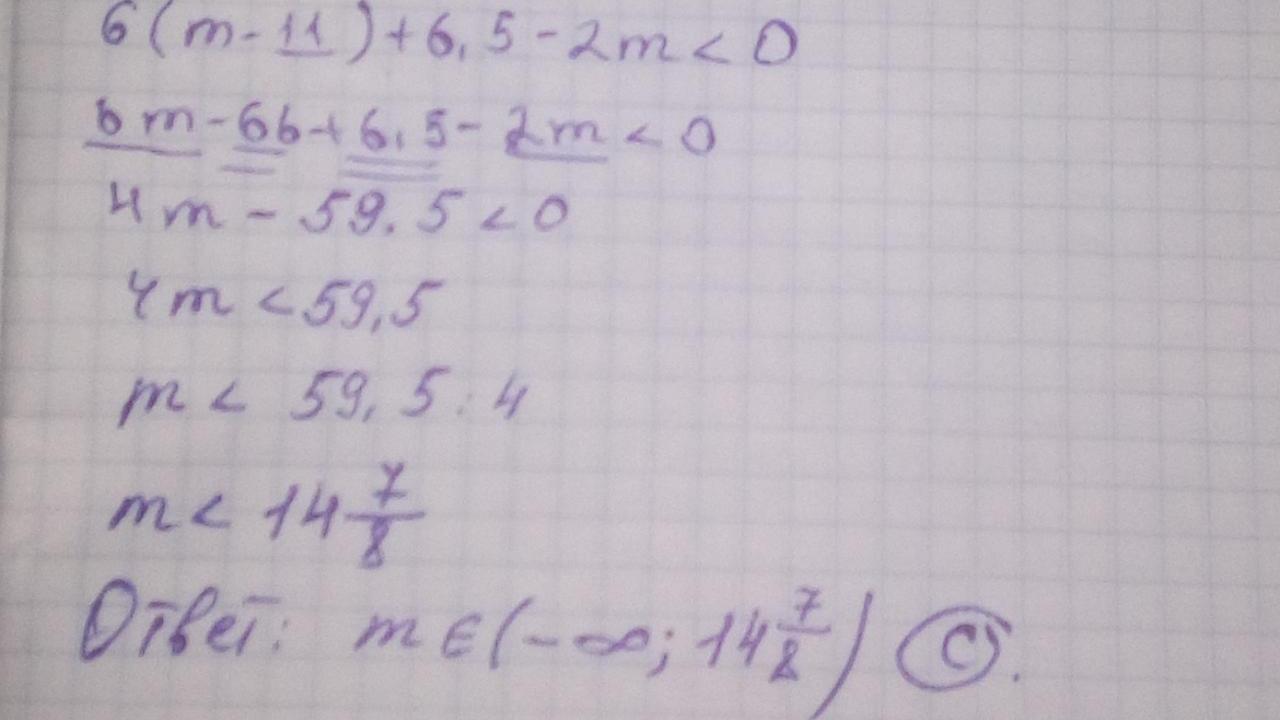 6(m-11)+6,5-2m<0
6m-66+6,5-2m<0
4m-59.5<0
4m<59,5
m< 59,5:4
m< 14 7/8
Ответ: m∈(-∞; 14 7/8) C.